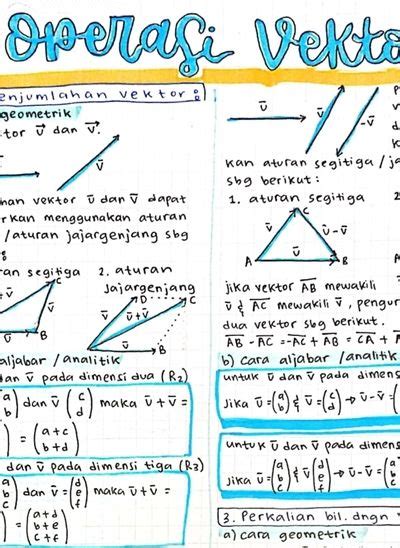 Operasi Vekto
enjumlahan vektor :
geometrik
tor ū dan v̄.
ū
v̄
han vektor ū dan v̄ dapat
rkan menggunakan aturan
/aturan jajargenjang sbg
ran segitiga
2. aturan
jajargenjang
C
v̄
B
D
C
ū+v̄
B
aljabar / analitik
dan v̄ pada dimensi dua (R2)
(a b) dan v̄ (c d) maka ū+v̄ =
) = (a+c b+d)
dan v̄ pada dimensi tiga (R3)
(a b c) dan v̄=(d e f) maka ū+v̄ =
) = (a+d b+e c+f)
ū
v̄
-v̄
kan aturan segitiga / ja
sbg berikut :
1. aturan segitiga
C
v̄
ū-v̄
A
ū
B
jika vektor AB mewakili
ū & AC mewakili v̄, pengur
dua vektor sbg berikut.
AB - AC = -AC + AB = CA + A
b) cara aljabar / analitik
untuk ū dan v̄ pada dimens
Jika ū=(a b) & v̄=(c d) → ū-v̄=(
untuk ū dan v̄ pada dimens
Jika ū=(a b c) & v̄=(d e f) → ū-v̄=(
3. Perkalian bil. dngn v
a) cara geometrik